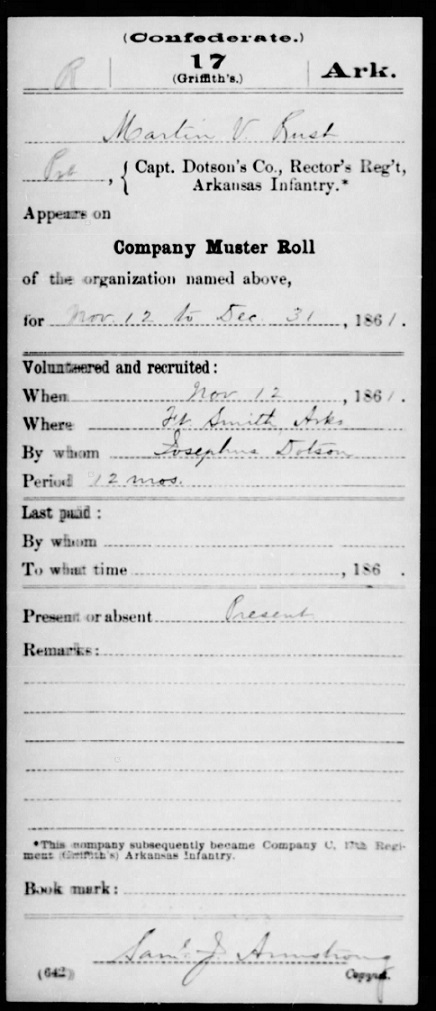 (Confederate.)
R | 17 (Griffith's.) | Ark.
Martin V. Rush
Pvt, { Capt. Dotson's Co., Rector's Reg't,
Arkansas Infantry.*
Appears on
Company Muster Roll
of the organization named above,
for Nov. 12 to Dec. 31, 1861.
Volunteered and recruited:
When Nov. 12, 1861.
Where Ft. Smith, Arks
By whom Josephus Dotson
Period 12 mos.
Last paid:
By whom
To what time , 186 .
Present or absent Present
Remarks:
*This company subsequently became Company C, 17th Regi-
ment (Griffith's) Arkansas Infantry.
Book mark:
Saml. J. Armstrong
(642) Copyist.